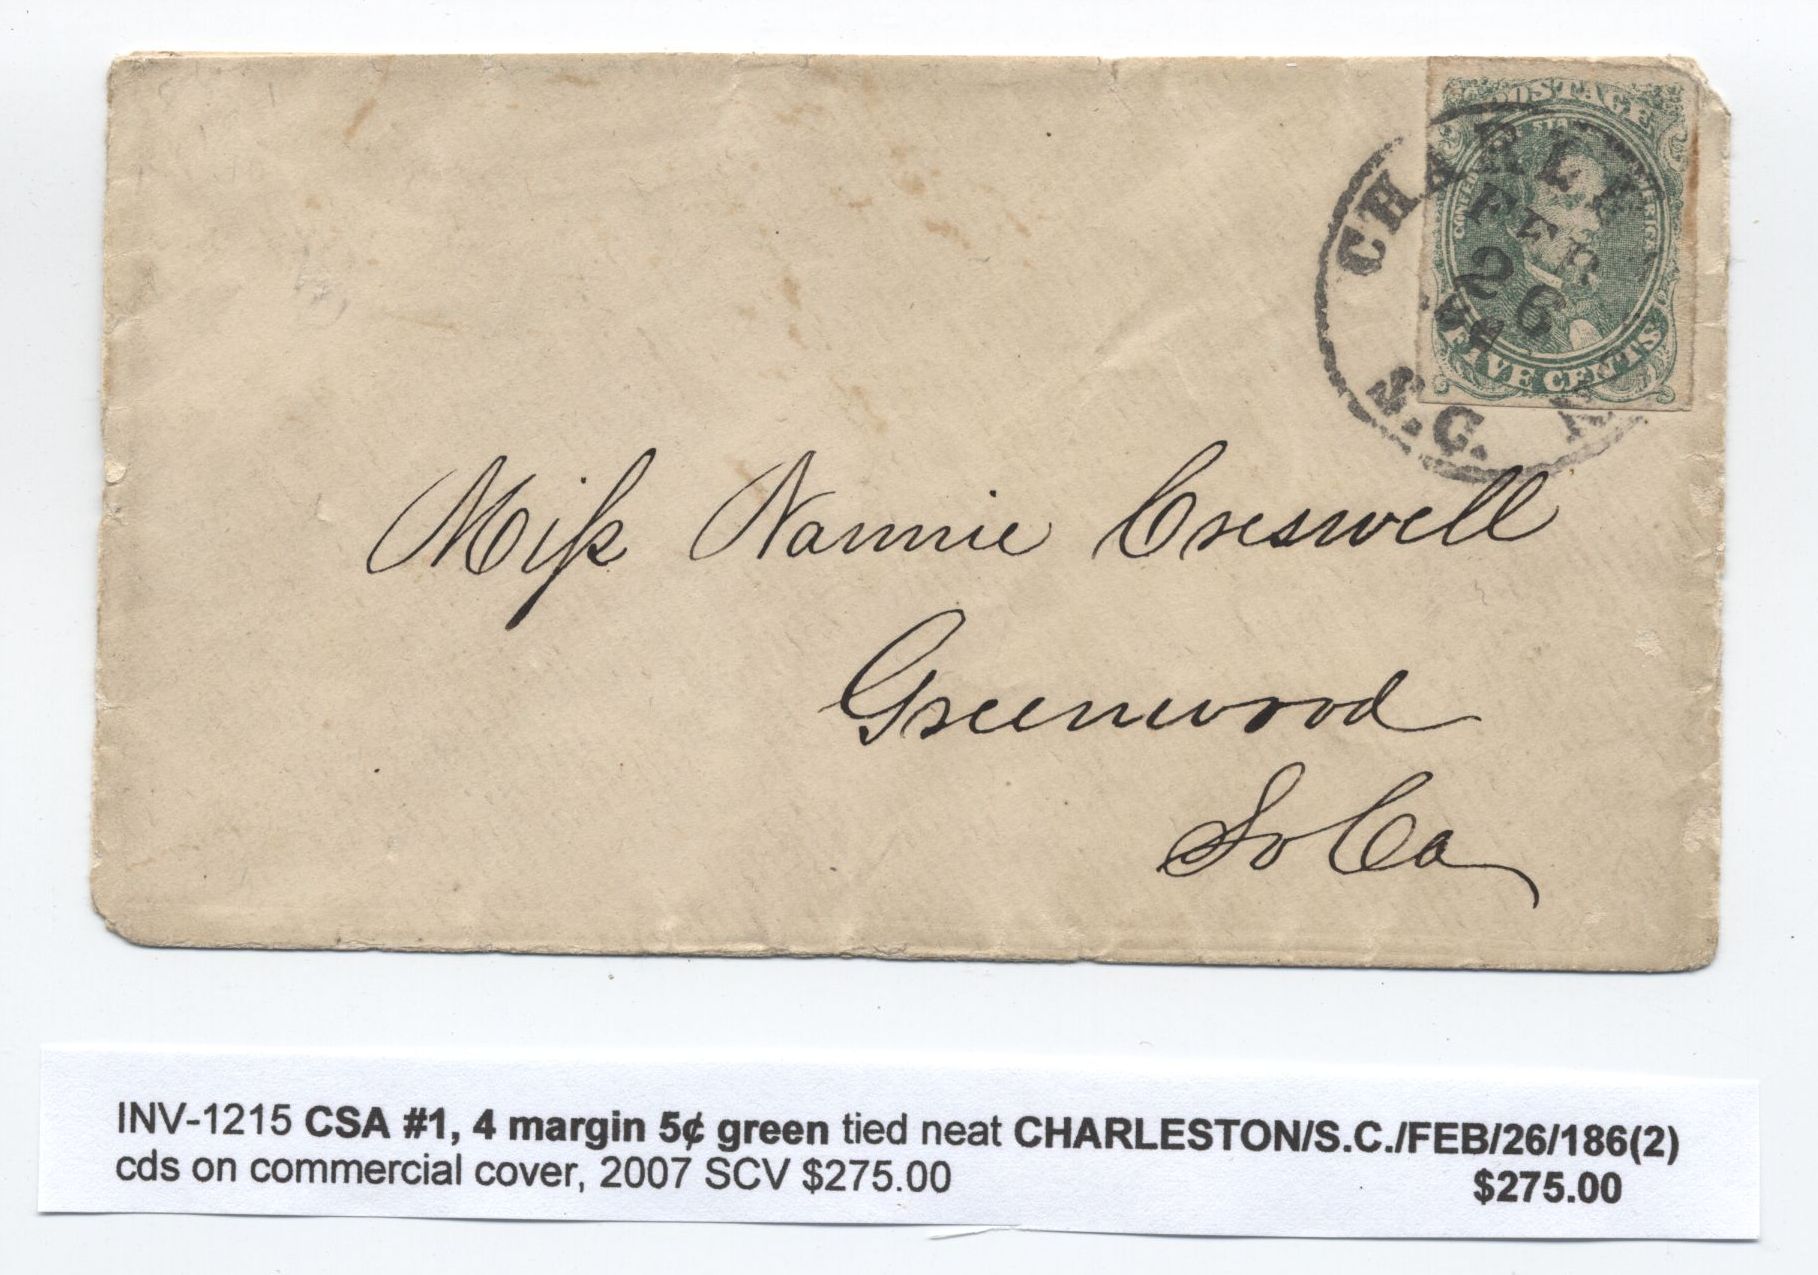 POSTAGE
CHARLE N
FEB
26
S.C.
FIVE CENTS
Miss Nannie Creswell
Greenwood
So Ca
INV-1215 CSA #1, 4 margin 5¢ green tied neat CHARLESTON/S.C./FEB/26/186(2)
cds on commercial cover, 2007 SCV $275.00 $275.00